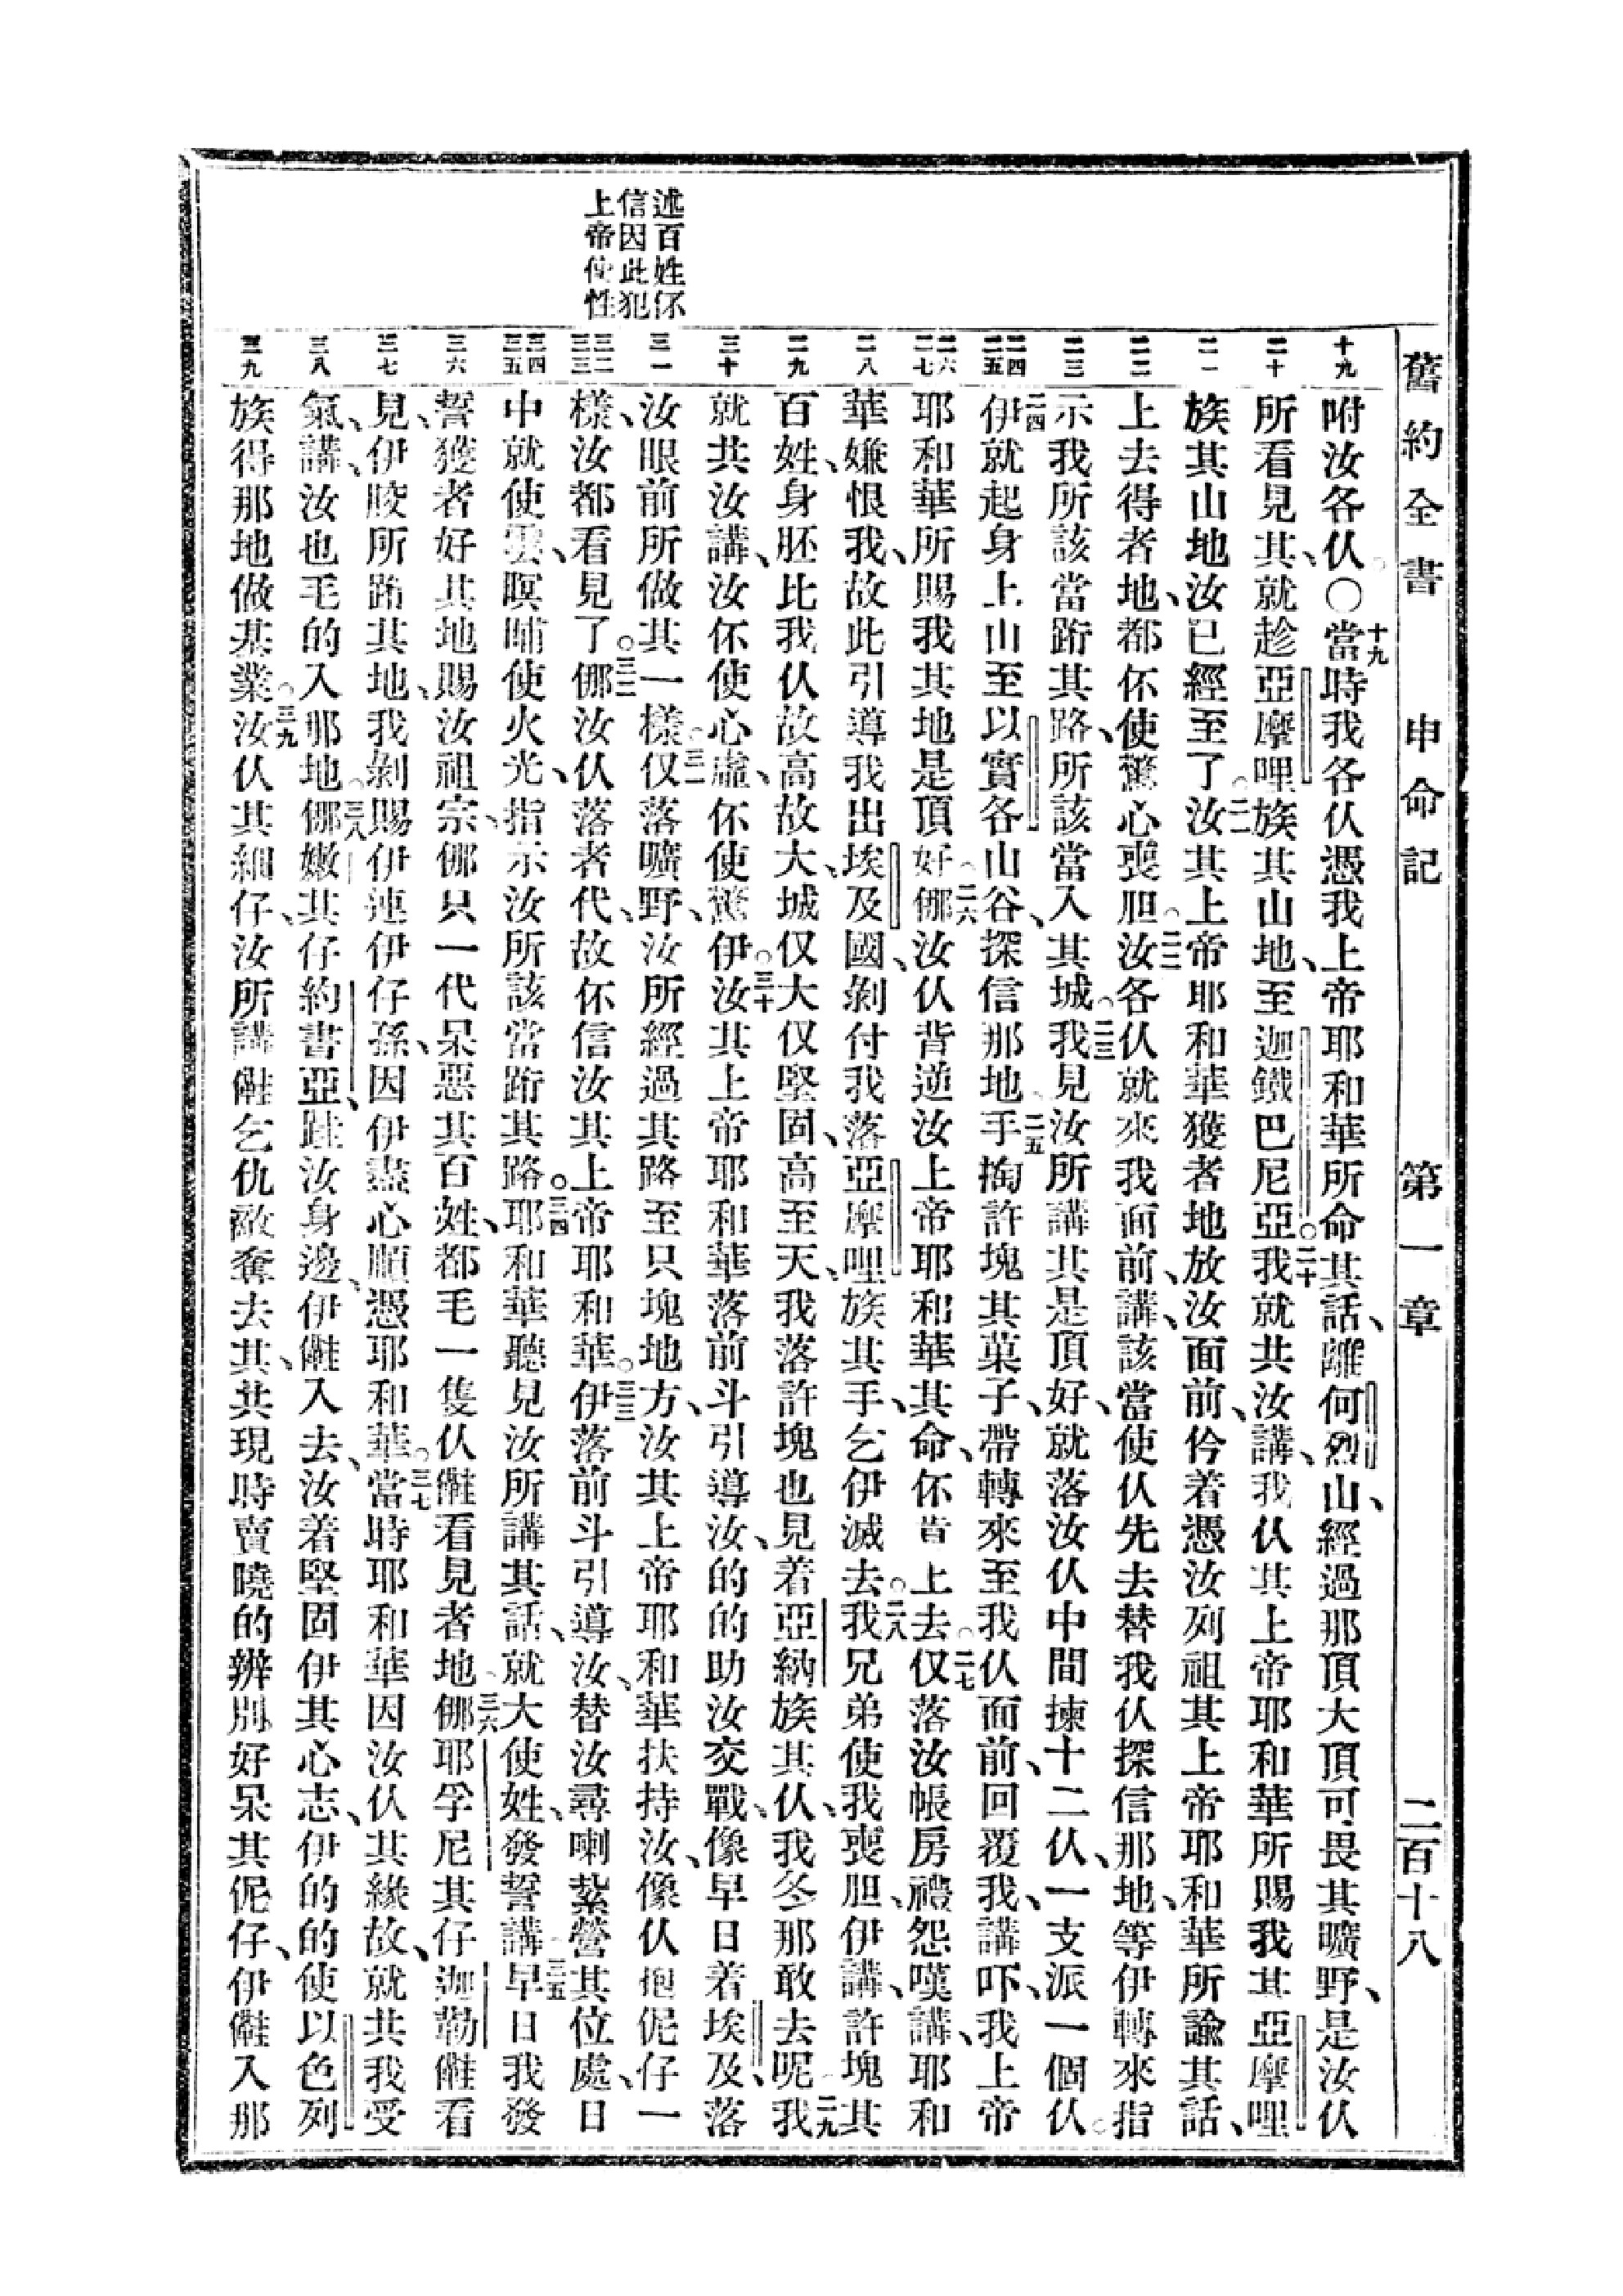 舊約全書 申命記 第一章 二百十八
述百姓伓
信因此犯
上帝使性
十九
二十
二一
二二
二三
二四 二五
二六 二七
二八
二九
三十
三一
三二 三三
三四 三五
三六
三七
三八
三九
咐汝各仈。〇十九當時我各仈憑我上帝耶和華所命其話、離何烈山、經過那頂大頂可畏其曠野、是汝仈
所看見其、就趁亞摩哩族其山地、至迦鐵巴尼亞。二十我就共汝講、我仈其上帝耶和華所賜我其亞摩哩
族其山地汝已經至了。二一汝其上帝耶和華獲者地放汝面前、仱着憑汝列祖其上帝耶和華所諭其話、
上去得者地、都伓使驚心喪胆。二二汝各仈就來我面前、講、該當使仈先去替我仈探信那地、等伊轉來指
示我所該當跲其路、所該當入其城。二三我見汝所講其是頂好、就落汝仈中間揀十二仈、一支派一個仈。
二四伊就起身上山至以實各山谷、探信那地。二五手掏許塊其菓子、帶轉來至我仈面前、回覆我、講、吓、我上帝
耶和華所賜我其地是頂好。二六倻汝仈背逆汝上帝耶和華其命、伓肯上去。二七仅落汝帳房禮怨嘆講、耶和
華嫌恨我、故此引導我出埃及國、剝付我落亞摩哩族其手、乞伊滅去。二八我兄弟使我喪胆、伊講、許塊其
百姓、身胚比我仈故高故大、城仅大仅堅固、高至天、我落許塊也見着亞納族其仈、我冬那敢去呢。二九我
就共汝講、汝伓使心虛、伓使驚伊。三十汝其上帝耶和華落前斗引導汝、的的助汝交戰、像早日着埃及、落
汝眼前所做其一樣。三一仅落曠野、汝所經過其路至只塊地方、汝其上帝耶和華扶持汝、像仈抱伲仔一
樣、汝都看見了。三二倻汝仈落者代、故伓信汝其上帝耶和華。三三伊落前斗引導汝、替汝尋喇紮營其位處、日
中就使雲暝晡使火光、指示汝所該當跲其路。三四耶和華聽見汝所講其話、就大使姓、發誓講、三五早日我發
誓獲者好其地賜汝祖宗、倻只一代呆惡其百姓、都毛一隻仈㒕看見者地。三六倻耶孚尼其仔迦勒㒕看
見、伊骹所跲其地、我剝賜伊連伊仔孫、因伊盡心順憑耶和華。三七當時耶和華因汝仈其緣故、就共我受
氣、講、汝也毛的入那地。三八倻嫩其仔約書亞、跬汝身邊、伊㒕入去、汝着堅固伊其心志、伊的的使以色列
族得那地做基業。三九汝仈其細仔、汝所講㒕乞仇敵奪去其、共現時賣曉的辨別好呆其伲仔、伊㒕入那